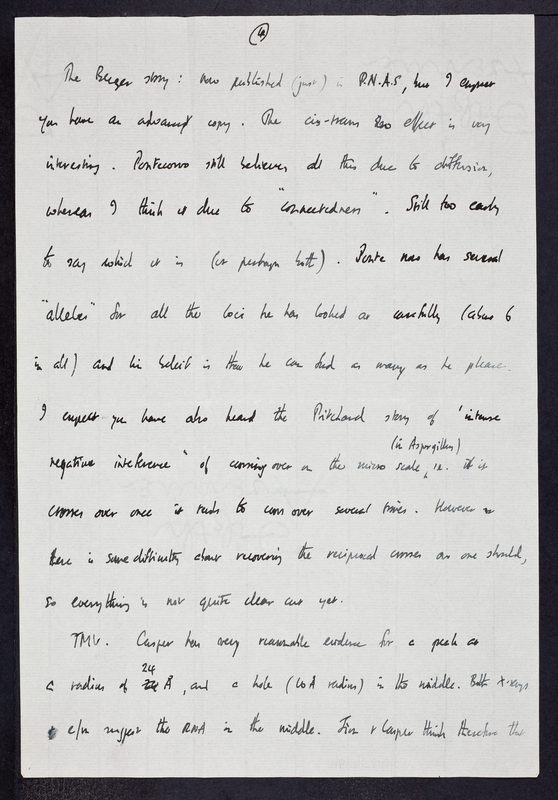 (4)
The Benzer story: now published (just) in P.N.A.S, but I expect
you have an advanced copy. The cis-trans effect is very
interesting. Pontecorvo still believes all this due to diffusion,
whereas I think it due to "connectedness". Still too early
to say which it is (or perhaps both). Ponte now has several
"alleles" for all the loci he has looked at carefully (about 6
in all) and his belief is that he can find as many as he pleases.
I expect you have also heard the Pritchard story of "intense
negative interference" of crossing over on the micro scale, (in Aspergillus) ie. if it
crosses over once it tends to cross over several times. However
there is some difficulty about recovering the reciprocal crosses as one should,
so everything is not quite clear cut yet.
TMV. Caspar has very reasonable evidence for a peak at
a radius of 24 Å, and a hole (10 Å radius) in the middle. Both X-rays
+ e/m suggest the RNA in the middle. Jim & Caspar think therefore that